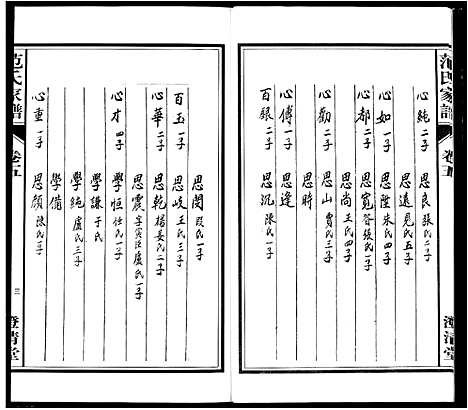 范氏家譜
卷五
澄清堂
心純 二子
思良 張氏二子
思遠 見氏五子
心如 一子
思陞 朱氏四子
心都 二子
思寬 管張氏一子
思尚 王氏四子
心勸 二子
思山 賈氏三子
思時
心傳 一子
思逢
百銀 二子
思汎 陳氏一子
思閔 段氏一子
百玉 一子
思岐 王氏三子
心華 二子
思乾 楊姜氏二子
思震 盧氏一子
心才 四子
學恒 任氏一子
學謙 于氏
學純 盧氏三子
學備
心重 一子
思顏 陳氏三子
范氏家譜
卷五
三
澄清堂